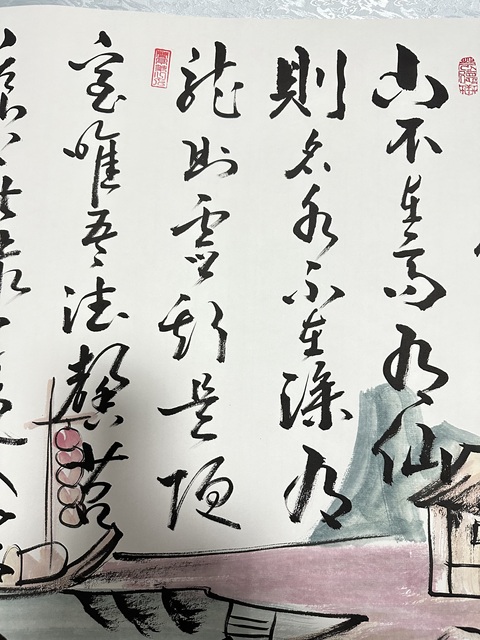 山不在高有仙
则名水不在深有
龙则灵斯是陋
室唯吾德馨苔